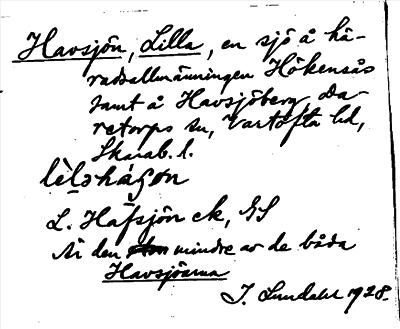 Havsjön, Lilla, en sjö å hä-
radsallmänningen Hökensås
samt å Havsjöberg, Da-
retorps sn, Vartofta hd,
Skarab. l.
lìlshágon
L. Hafsjön ek, GS
Är den mindre av de båda
Havsjöarna
J. Lundahl 1928.